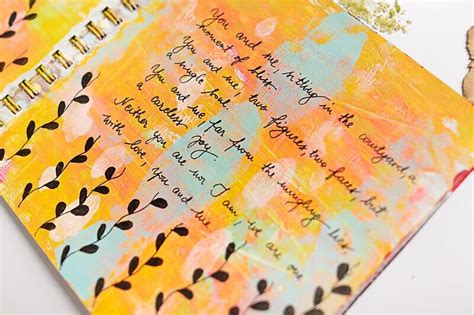 You and me, sitting in the courtyard, a
moment of bliss
You and me, two figures, two faces, but
a single soul.
You and me far from the
a careless joy
Neither you are nor I am, we are one
with love, You and me